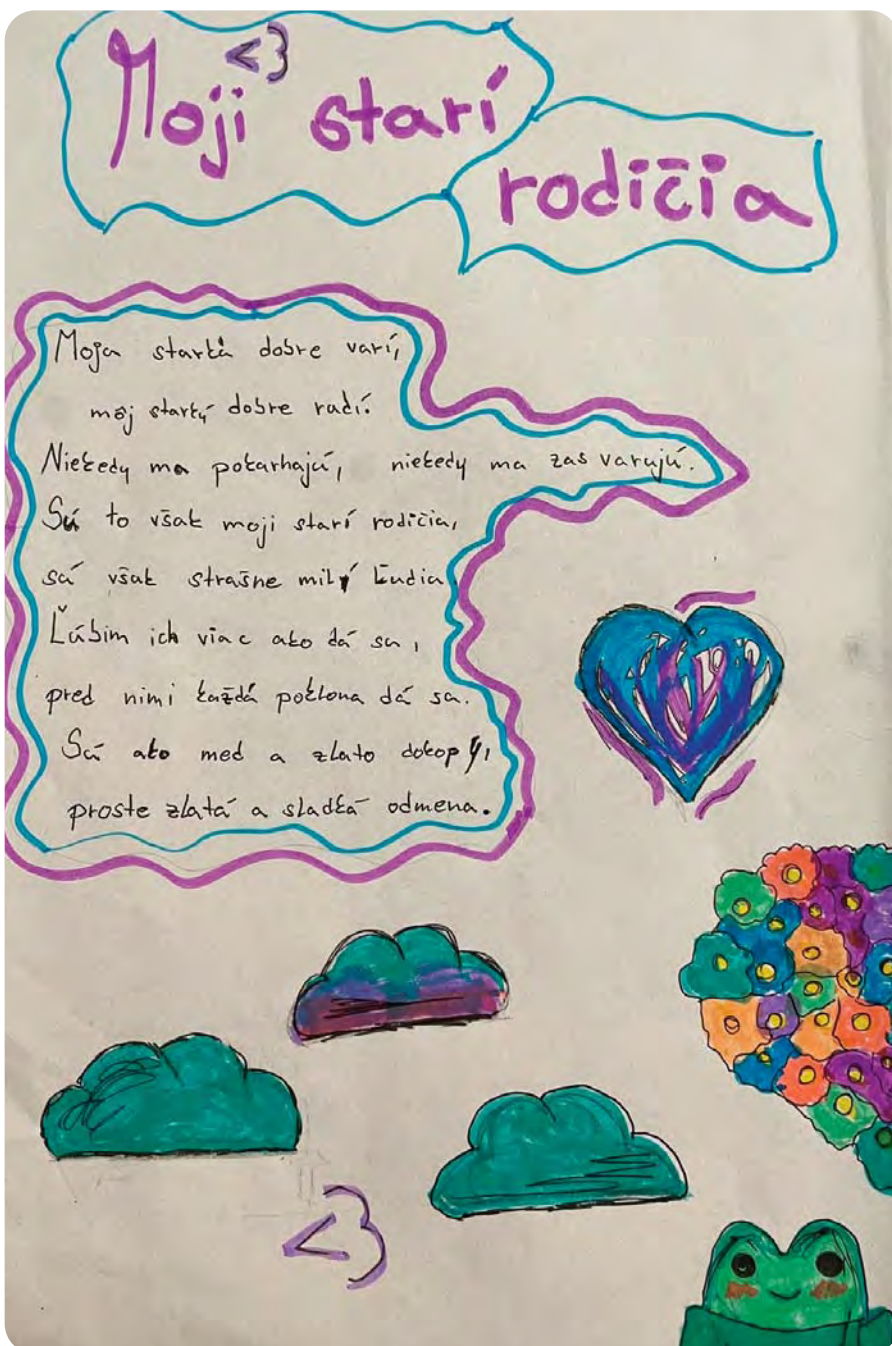 Moji <3 starí
rodičia
Moja starká dobre varí,
môj starký dobre radí.
Niekedy ma pokarhajú, niekedy ma zas varujú.
Sú to však moji starí rodičia,
sú však strašne milý ľudia.
Ľúbim ich viac ako dá sa,
pred nimi každá poklona dá sa.
Sú ako med a zlato dokopy,
proste zlatá a sladká odmena.
<3